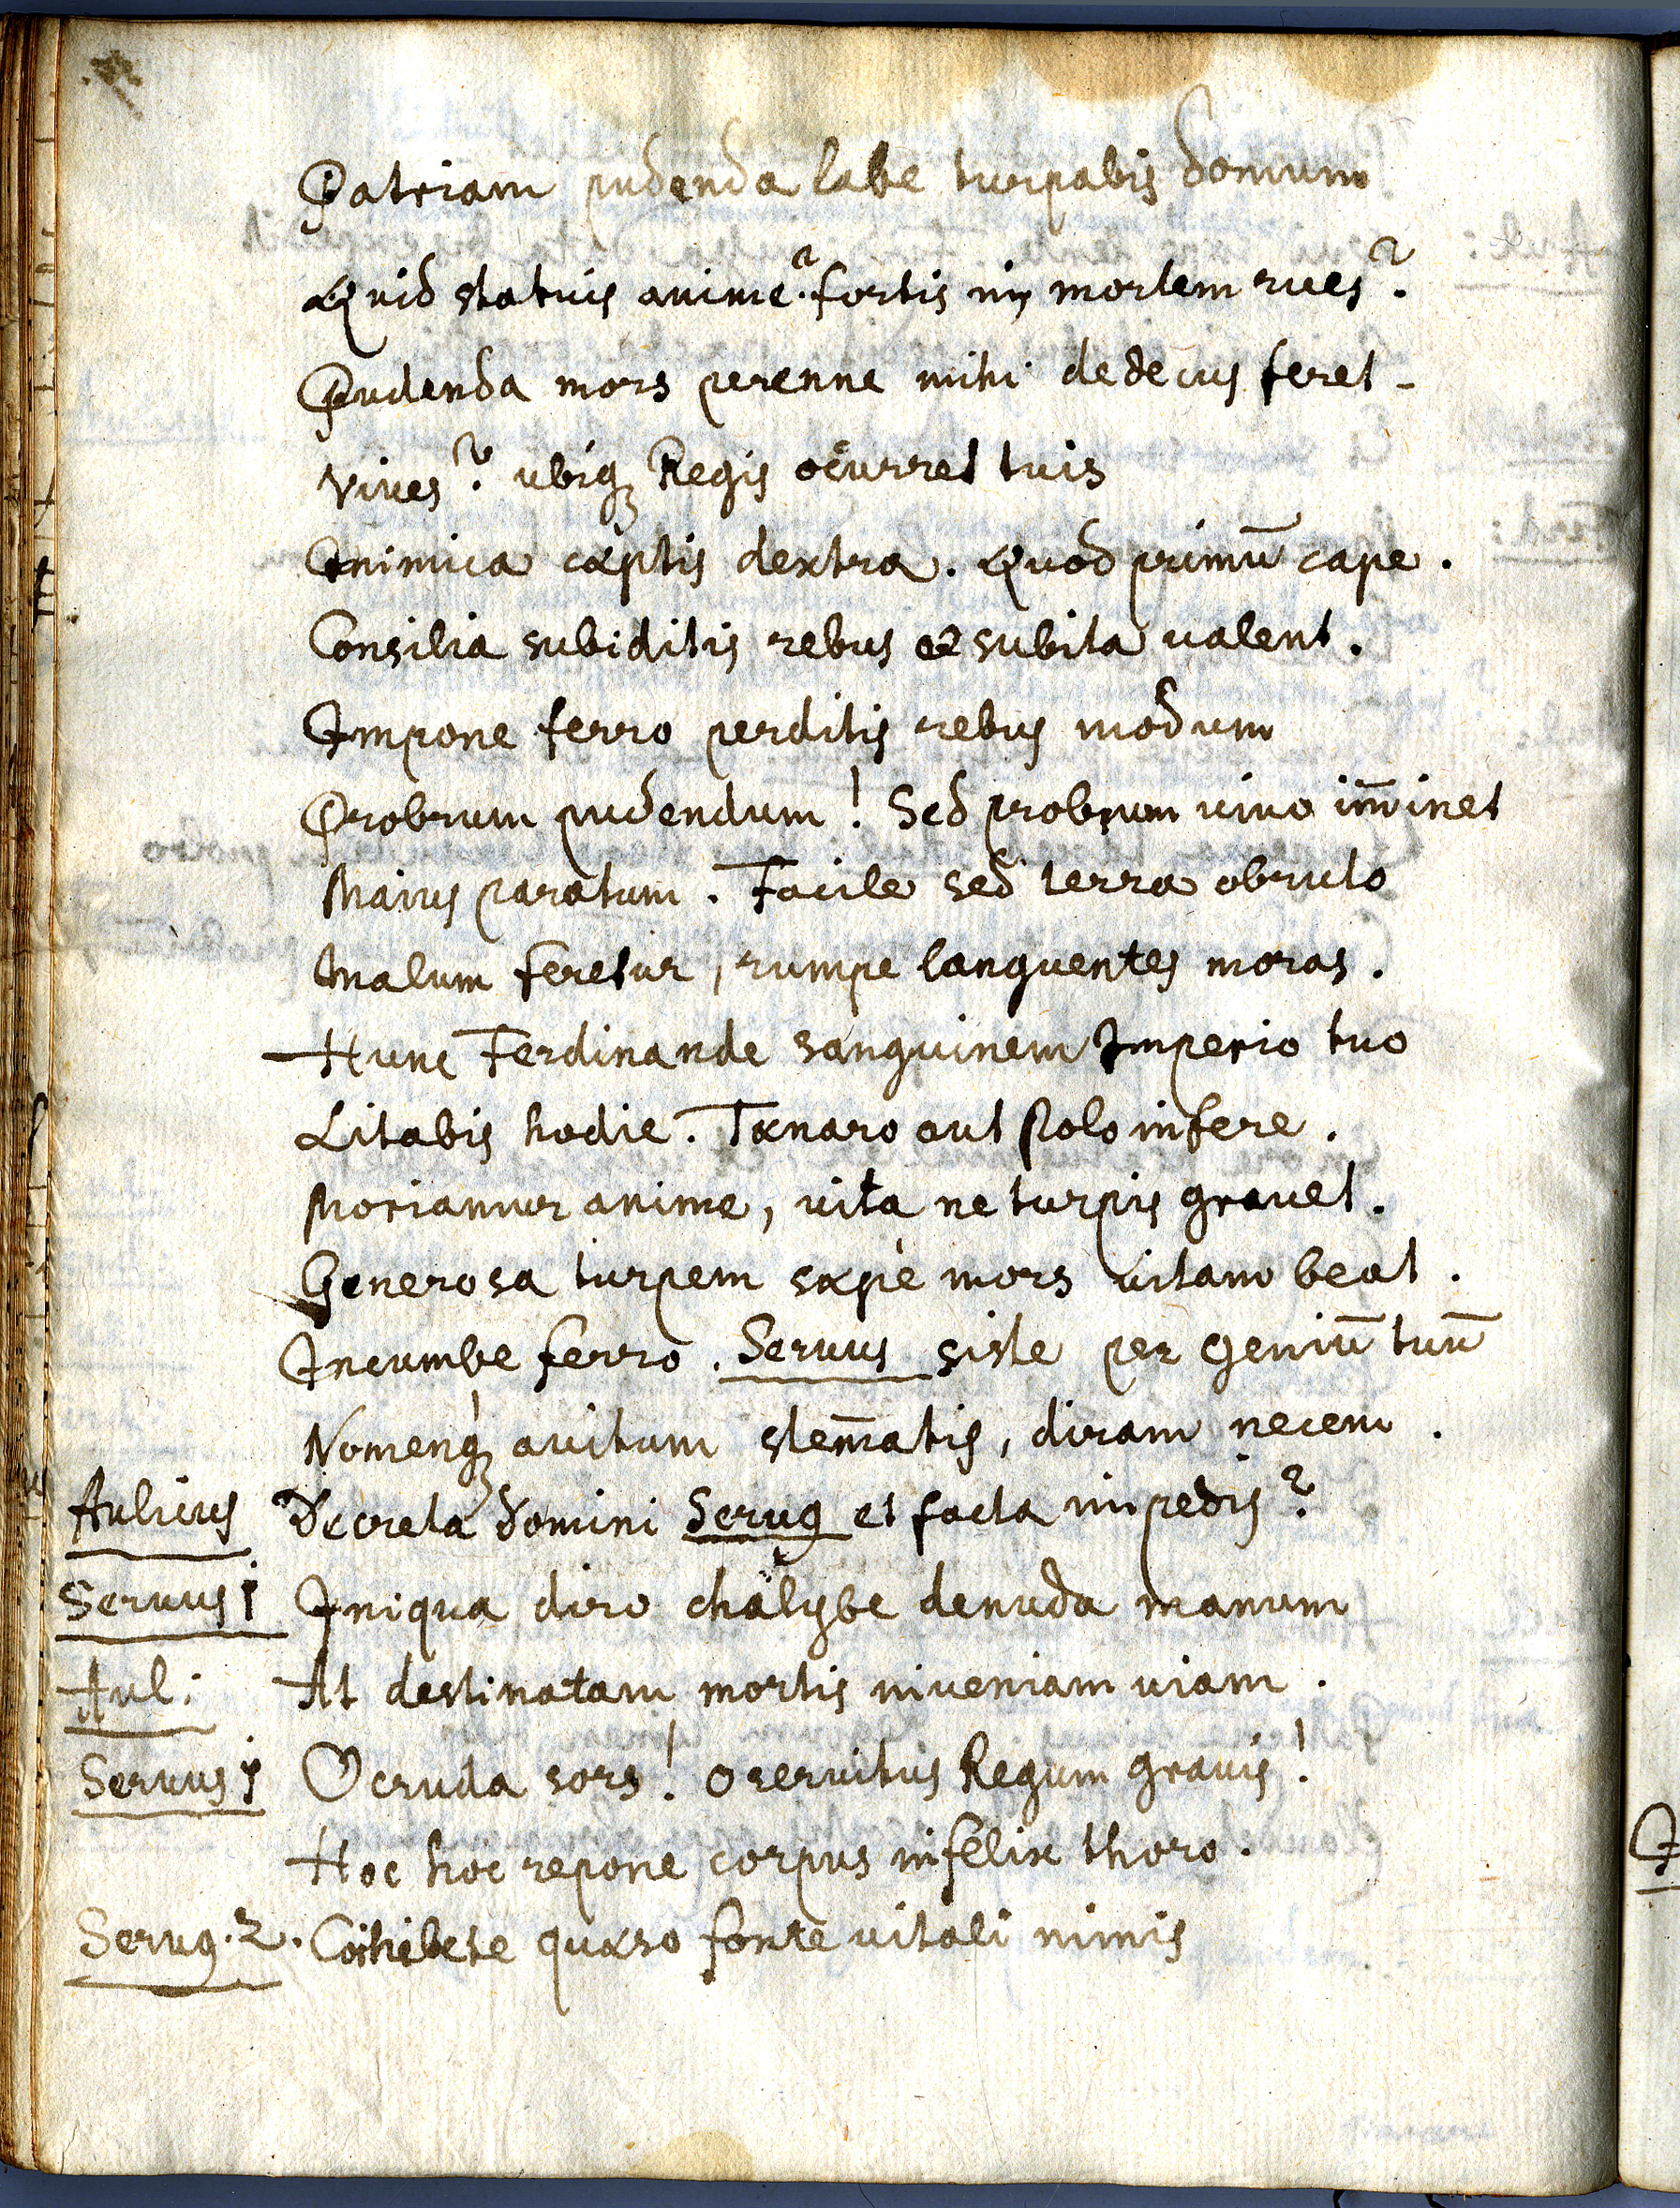 Patriam pudenda labe turpabis domum
Quid statuis anime? fortis in mortem rues?
Pudenda mors perenne mihi dedecus feret-
Vives? ubiq; Regis occurret tuis
Inimica cæptis dextra. Quod primū cape.
Consilia subiditis rebus et subita valent.
Impone ferro perditis rebus modum
Probrum pudendum! Sed probrum vivo im̄inet
Maius paratum. Facile sed terra obruto
Malum feretur, rumpe languentes moras.
Hunc Ferdinande sanguinem Imperio tuo
Litabis hodie. Tænaro aut Polo infere.
Moriamur anime, vita ne turpis gravet.
Generosa turpem sæpè mors vitam beat.
Incumbe ferro. Servus siste per Geniū tuū
Nomenq; avitum stem̄atis, diram necem.
Aulicus Decreta domini Serug et facta impedis?
Servus i Iniqua diro chalybe denuda manum
Aul: At destinatam mortis inveniam viam.
Servus i O cruda sors! o servitus Regum gravis!
Hoc hoc repone corpus infelix thoro.
Serug. 2. Cohibete quæso fonte vitali nimis